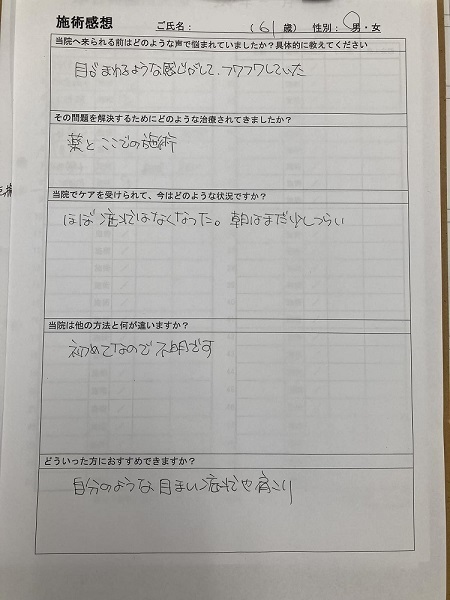 施術感想 ご氏名： (61歳) 性別：男・女
当院へ来られる前はどのような声で悩まれていましたか？具体的に教えてください
目がまわるような感じがして、フワフワしていた
その問題を解決するためにどのような治療されてきましたか？
薬とここでの施術
当院でケアを受けられて、今はどのような状況ですか？
ほぼ症状はなくなった。朝はまだ少しつらい
当院は他の方法と何が違いますか？
初めてなので不明です
どういった方におすすめできますか？
自分のような目まい症状や肩こり